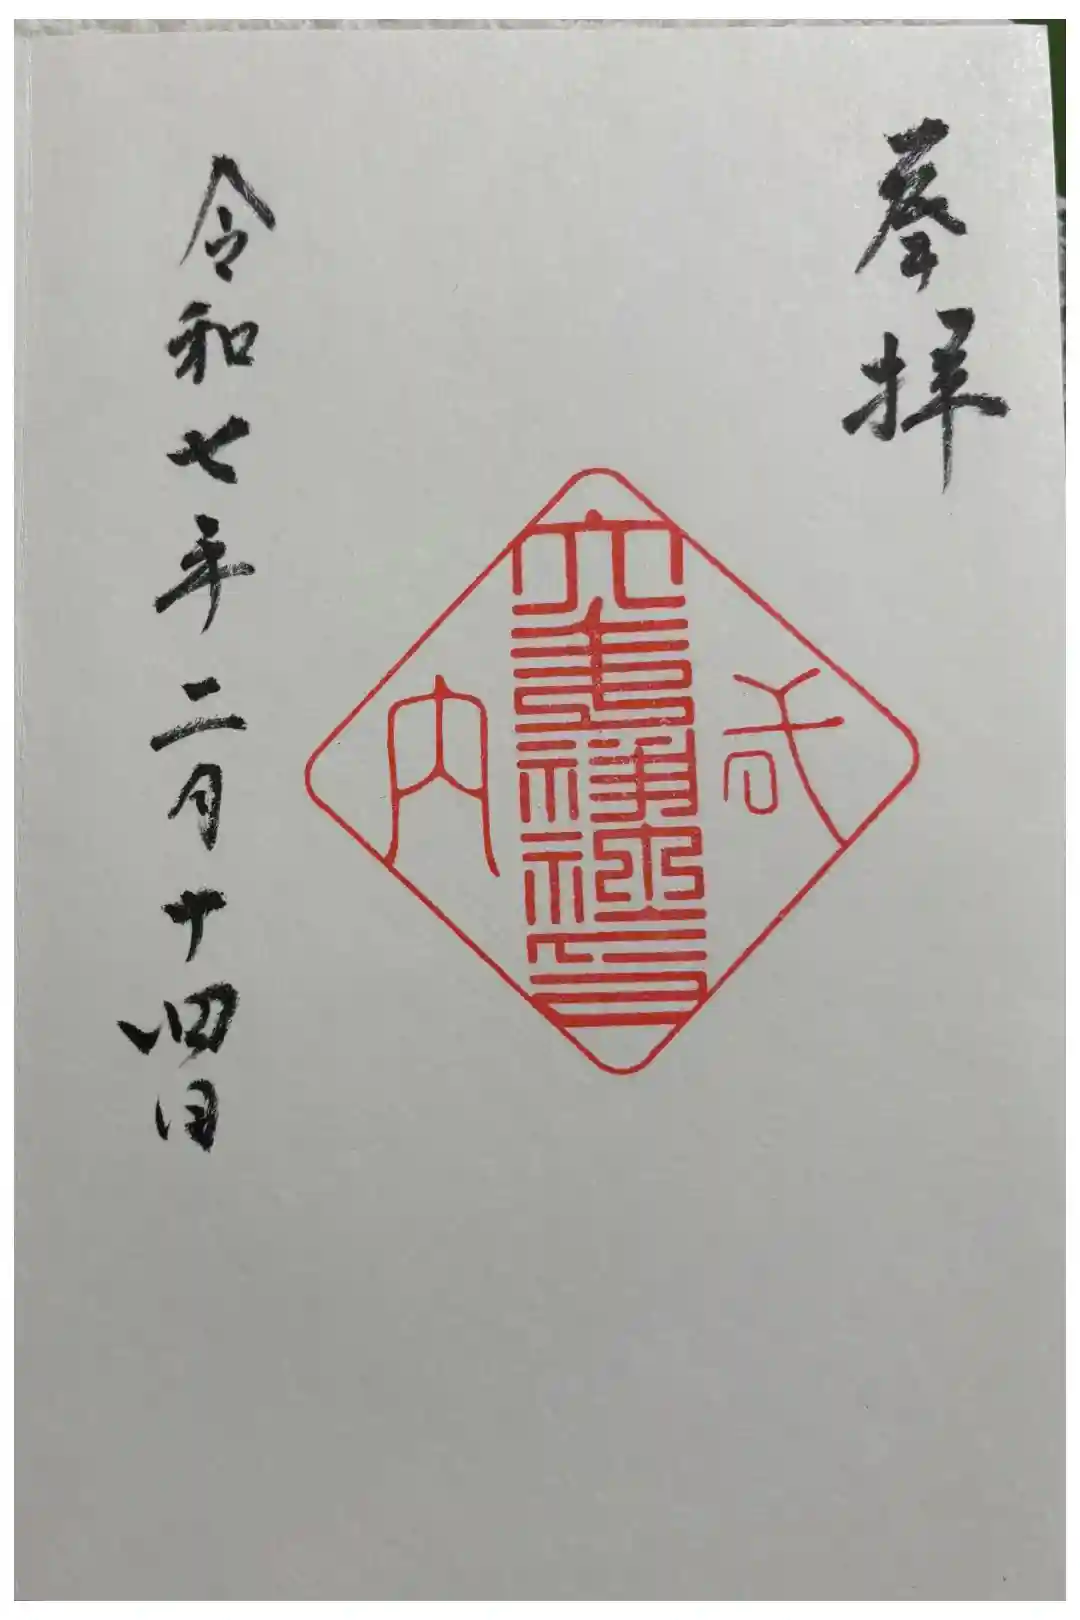 奉拝
神社印
内
令和七年二月十四日